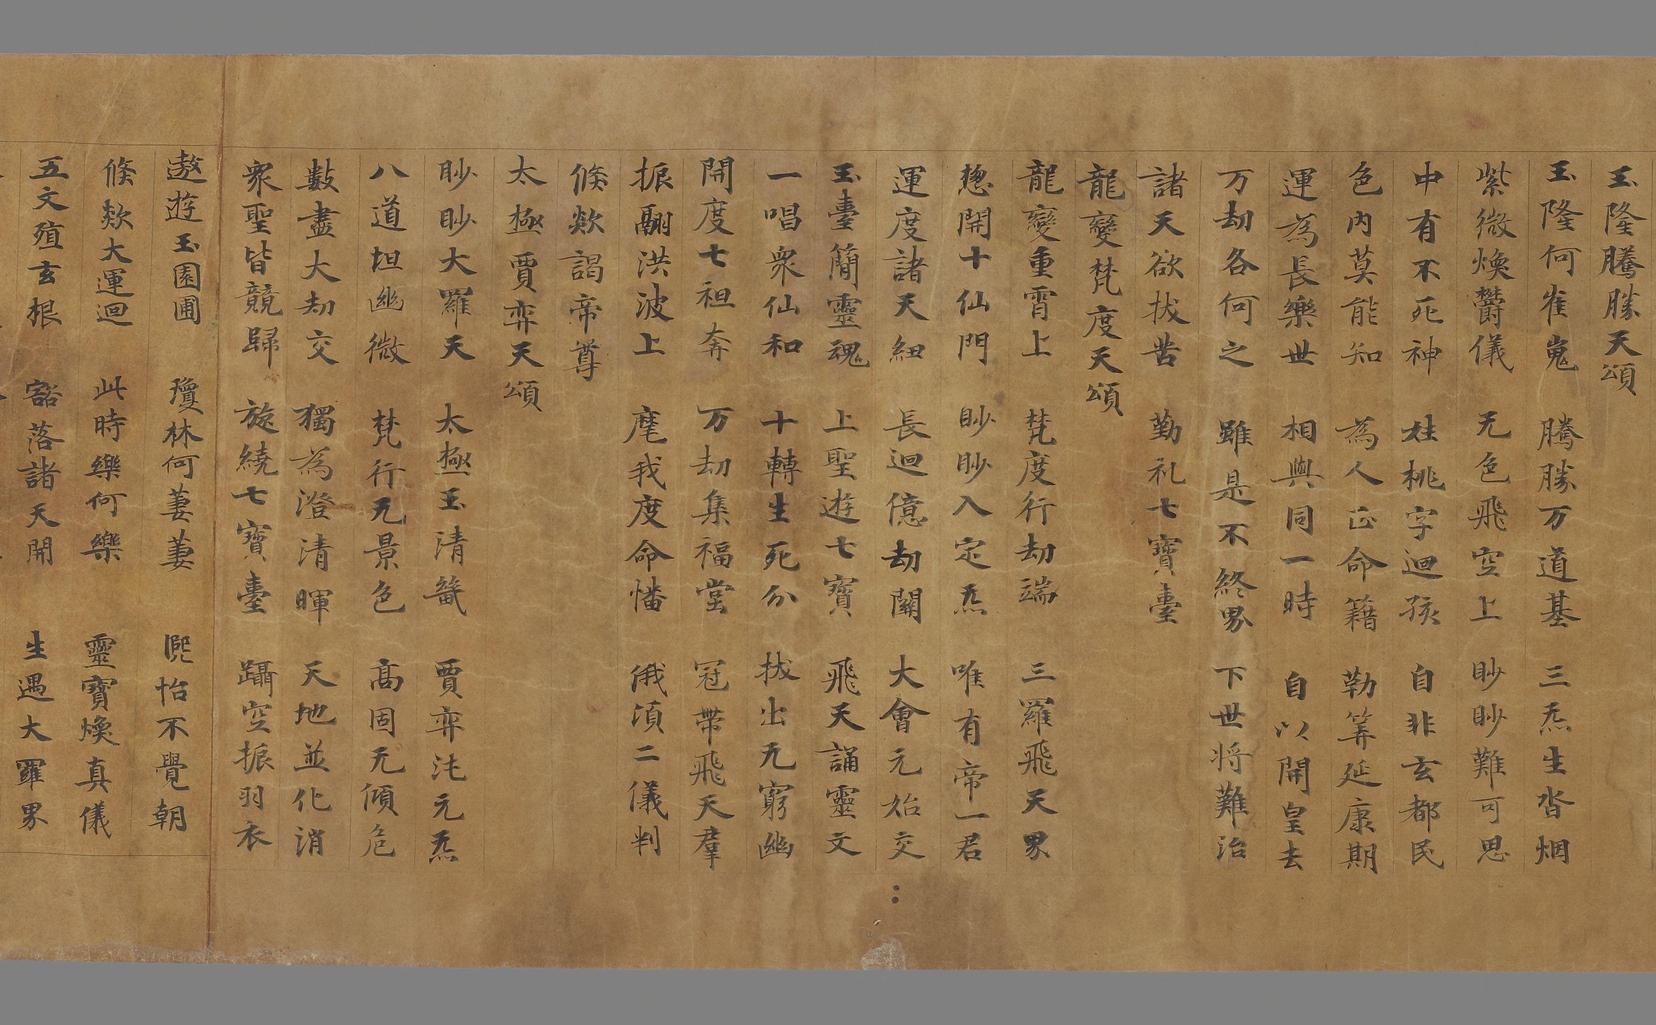 玉隆騰勝天頌
玉隆何崔嵬 騰勝万道基 三炁生沓烟
紫微煥欝儀 无色飛空上 眇眇難可思
中有不死神 姓桃字迴孩 自非玄都民
色內莫能知 為人正命籍 勒筭延康期
運為長樂世 相與同一時 自以開皇去
万劫各何之 雖是不終界 下世将難治
諸天欲拔苦 勤礼七寶臺
龍變梵度天頌
龍變重霄上 梵度行劫端 三羅飛天界
揔開十仙門 眇眇入定炁 唯有帝一君
運度諸天紐 長迴億劫關 大會元始交
玉臺簡靈魂 上聖遊七寶 飛天誦靈文
一唱衆仙和 十轉生死分 拔出无窮幽
開度七祖奔 万劫集福堂 冠帶飛天羣
振翮洪波上 麾我度命幡 俄頃二儀判
倏欻謁帝尊
太極賈弈天頌
眇眇大羅天 太極玉清畿 賈弈沌元炁
八道坦幽微 梵行无景色 高固无傾危
數盡大劫交 獨為澄清暉 天地並化消
衆聖皆競歸 旋繞七寶臺 躡空振羽衣
遨遊玉園圃 瓊林何萋萋 熈怡不覺朝
倏欻大運迴 此時樂何樂 靈寶煥真儀
五文殖玄根 豁落諸天開 生遇大羅界